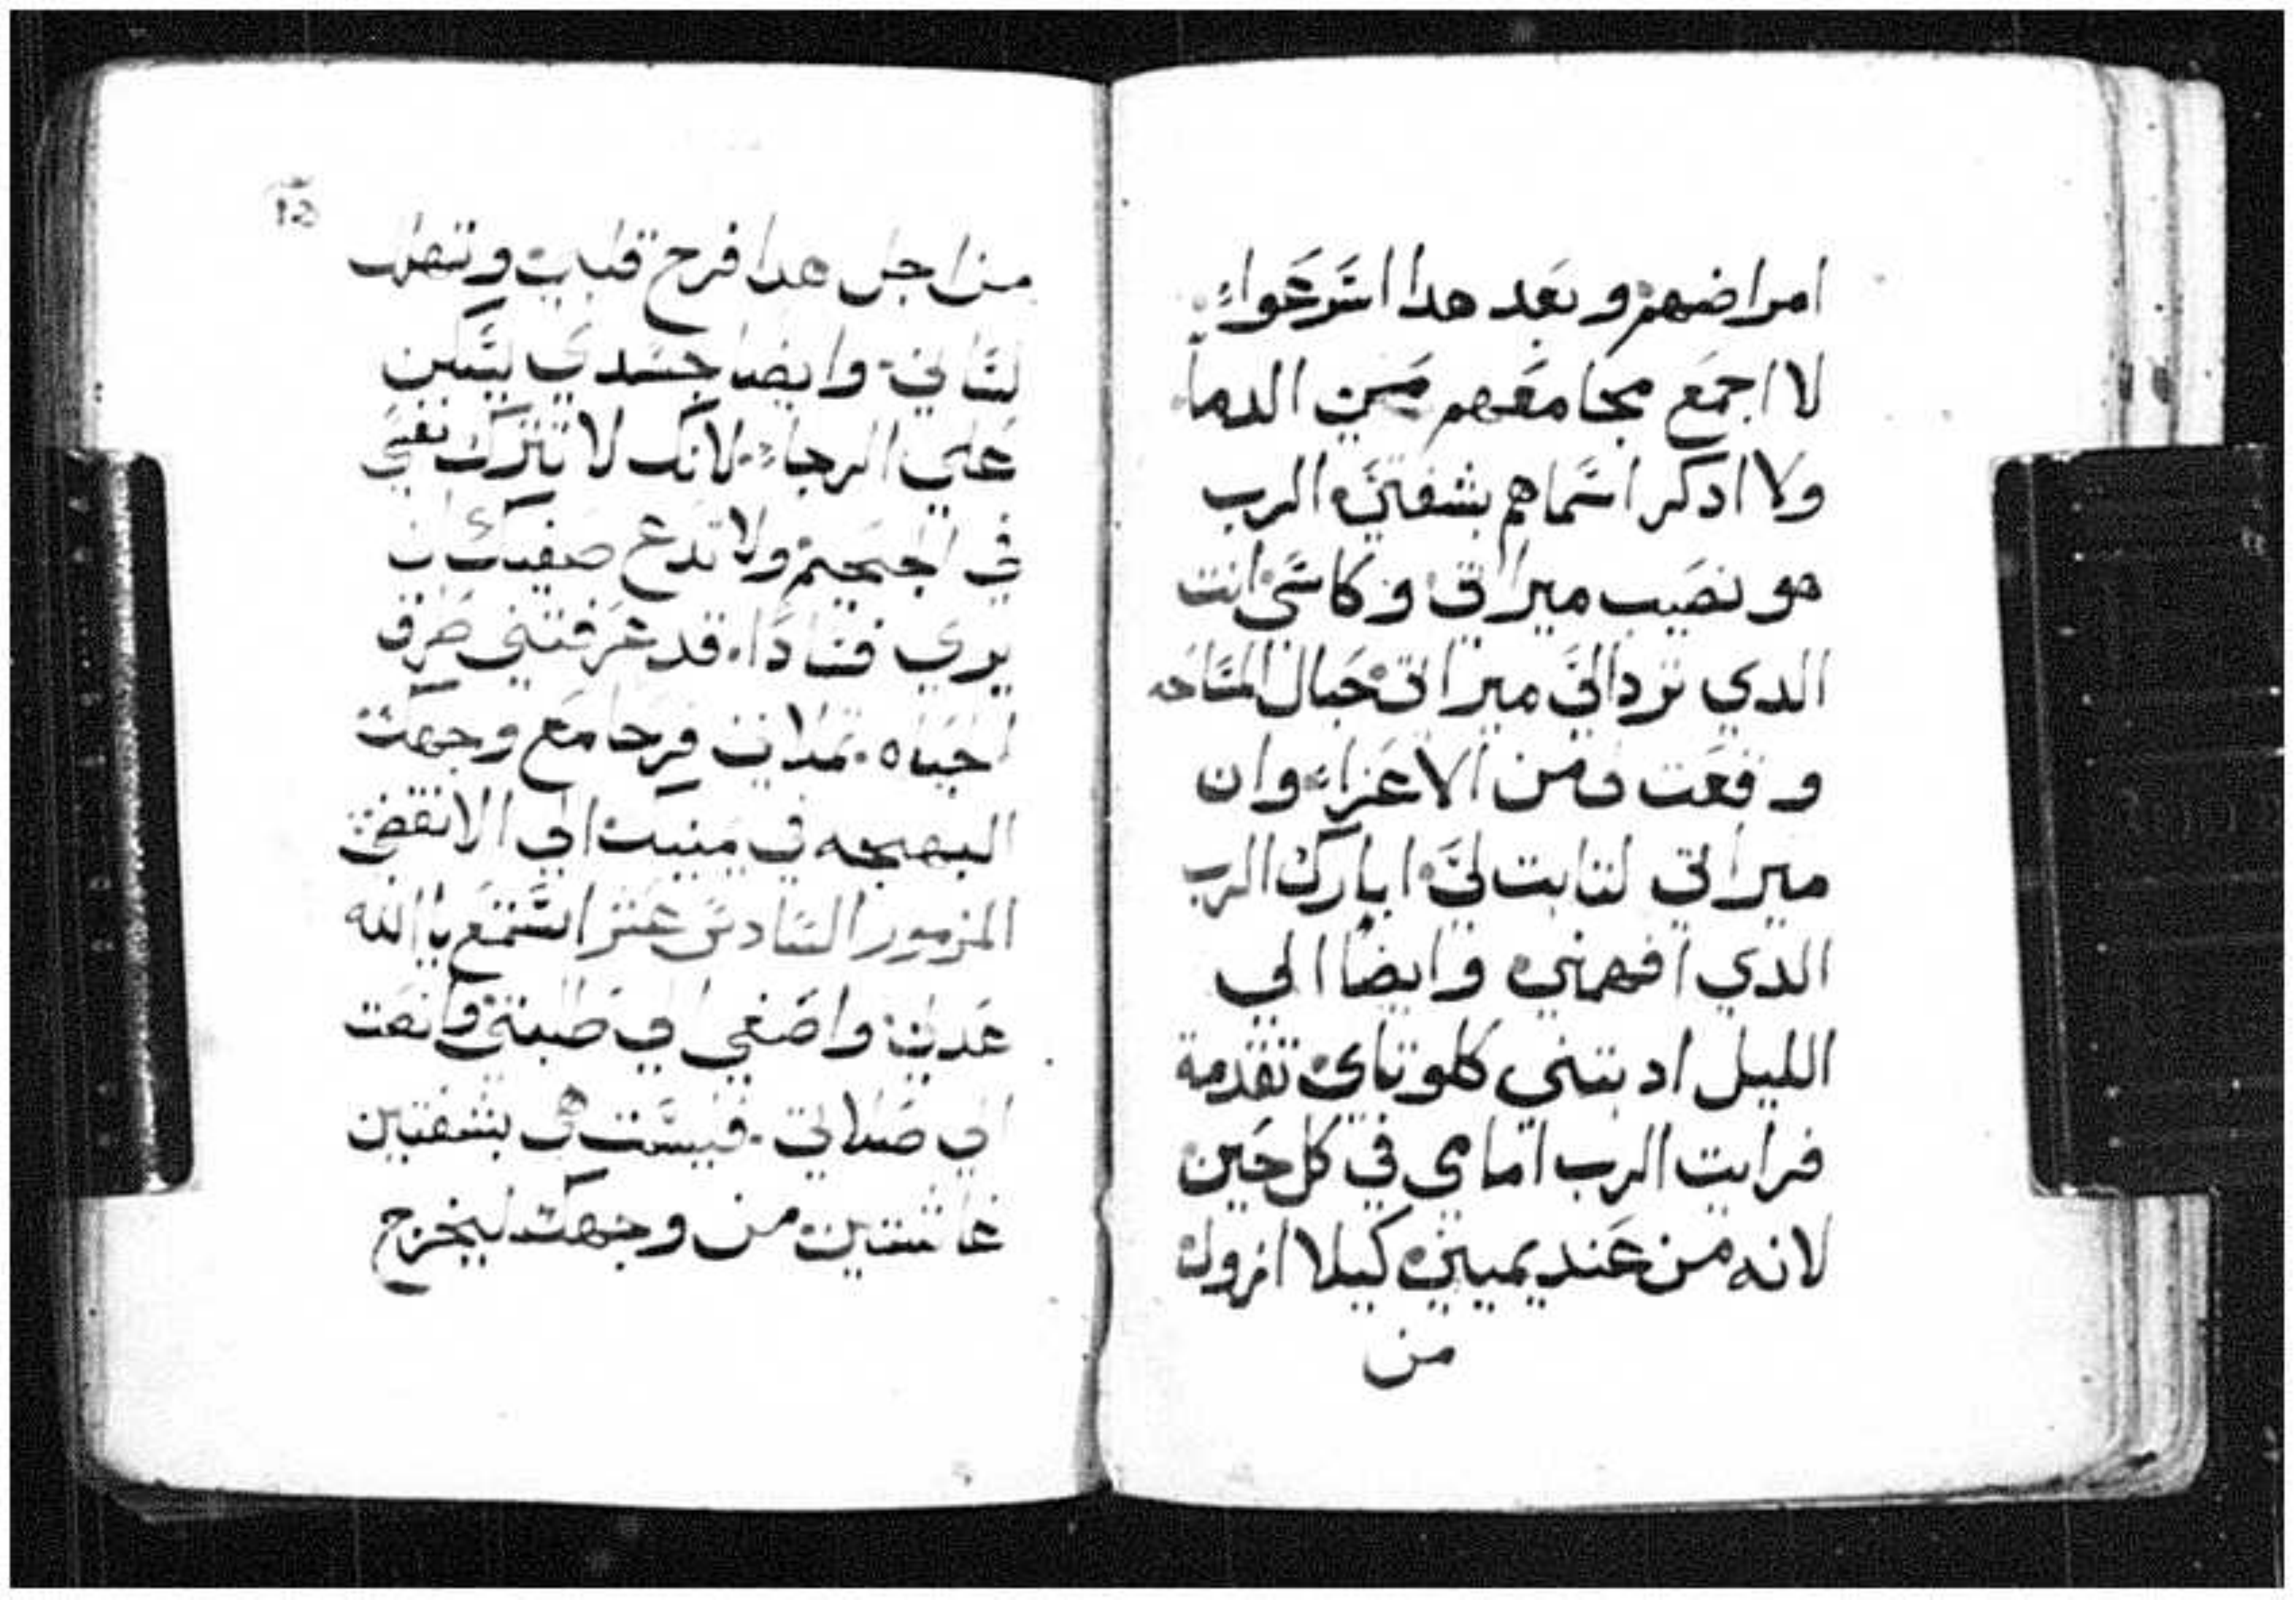 امراضهم وبعد هدا اسرعوا
لا اجمع مجامعهم من الدما
ولا ادكر اسماهم بشفتي الرب
هو نصيب ميراتي وكاسي انت
الدي ترد الي ميراتي حبال المساحه
وقعت من الاعزاء وان
ميراتي لتابت لي ابارك الرب
الدي افهمني وايضا الي
الليل ادبتني كلوتاي تقدمة
فرايت الرب امامي في كل حين
لانه من عند يميني كيلا ازول
من
من اجل هدا فرح قلبي وتهلل
لساني وايضا جسدي يسكن
علي الرجاء لانك لا تترك نفسي
في الجحيم ولا تدع صفيك ان
يري فسادا قد عرفتني طرق
الحياه تملاني فرحا مع وجهك
البهجه في يمينك الي الانقضى
المزمور السادس عشر استمع يا الله
عدلي واصغي الي طلبتي وانصت
الي صلاتي فليست هي بشفتين
غاشتين من وجهك ليخرج